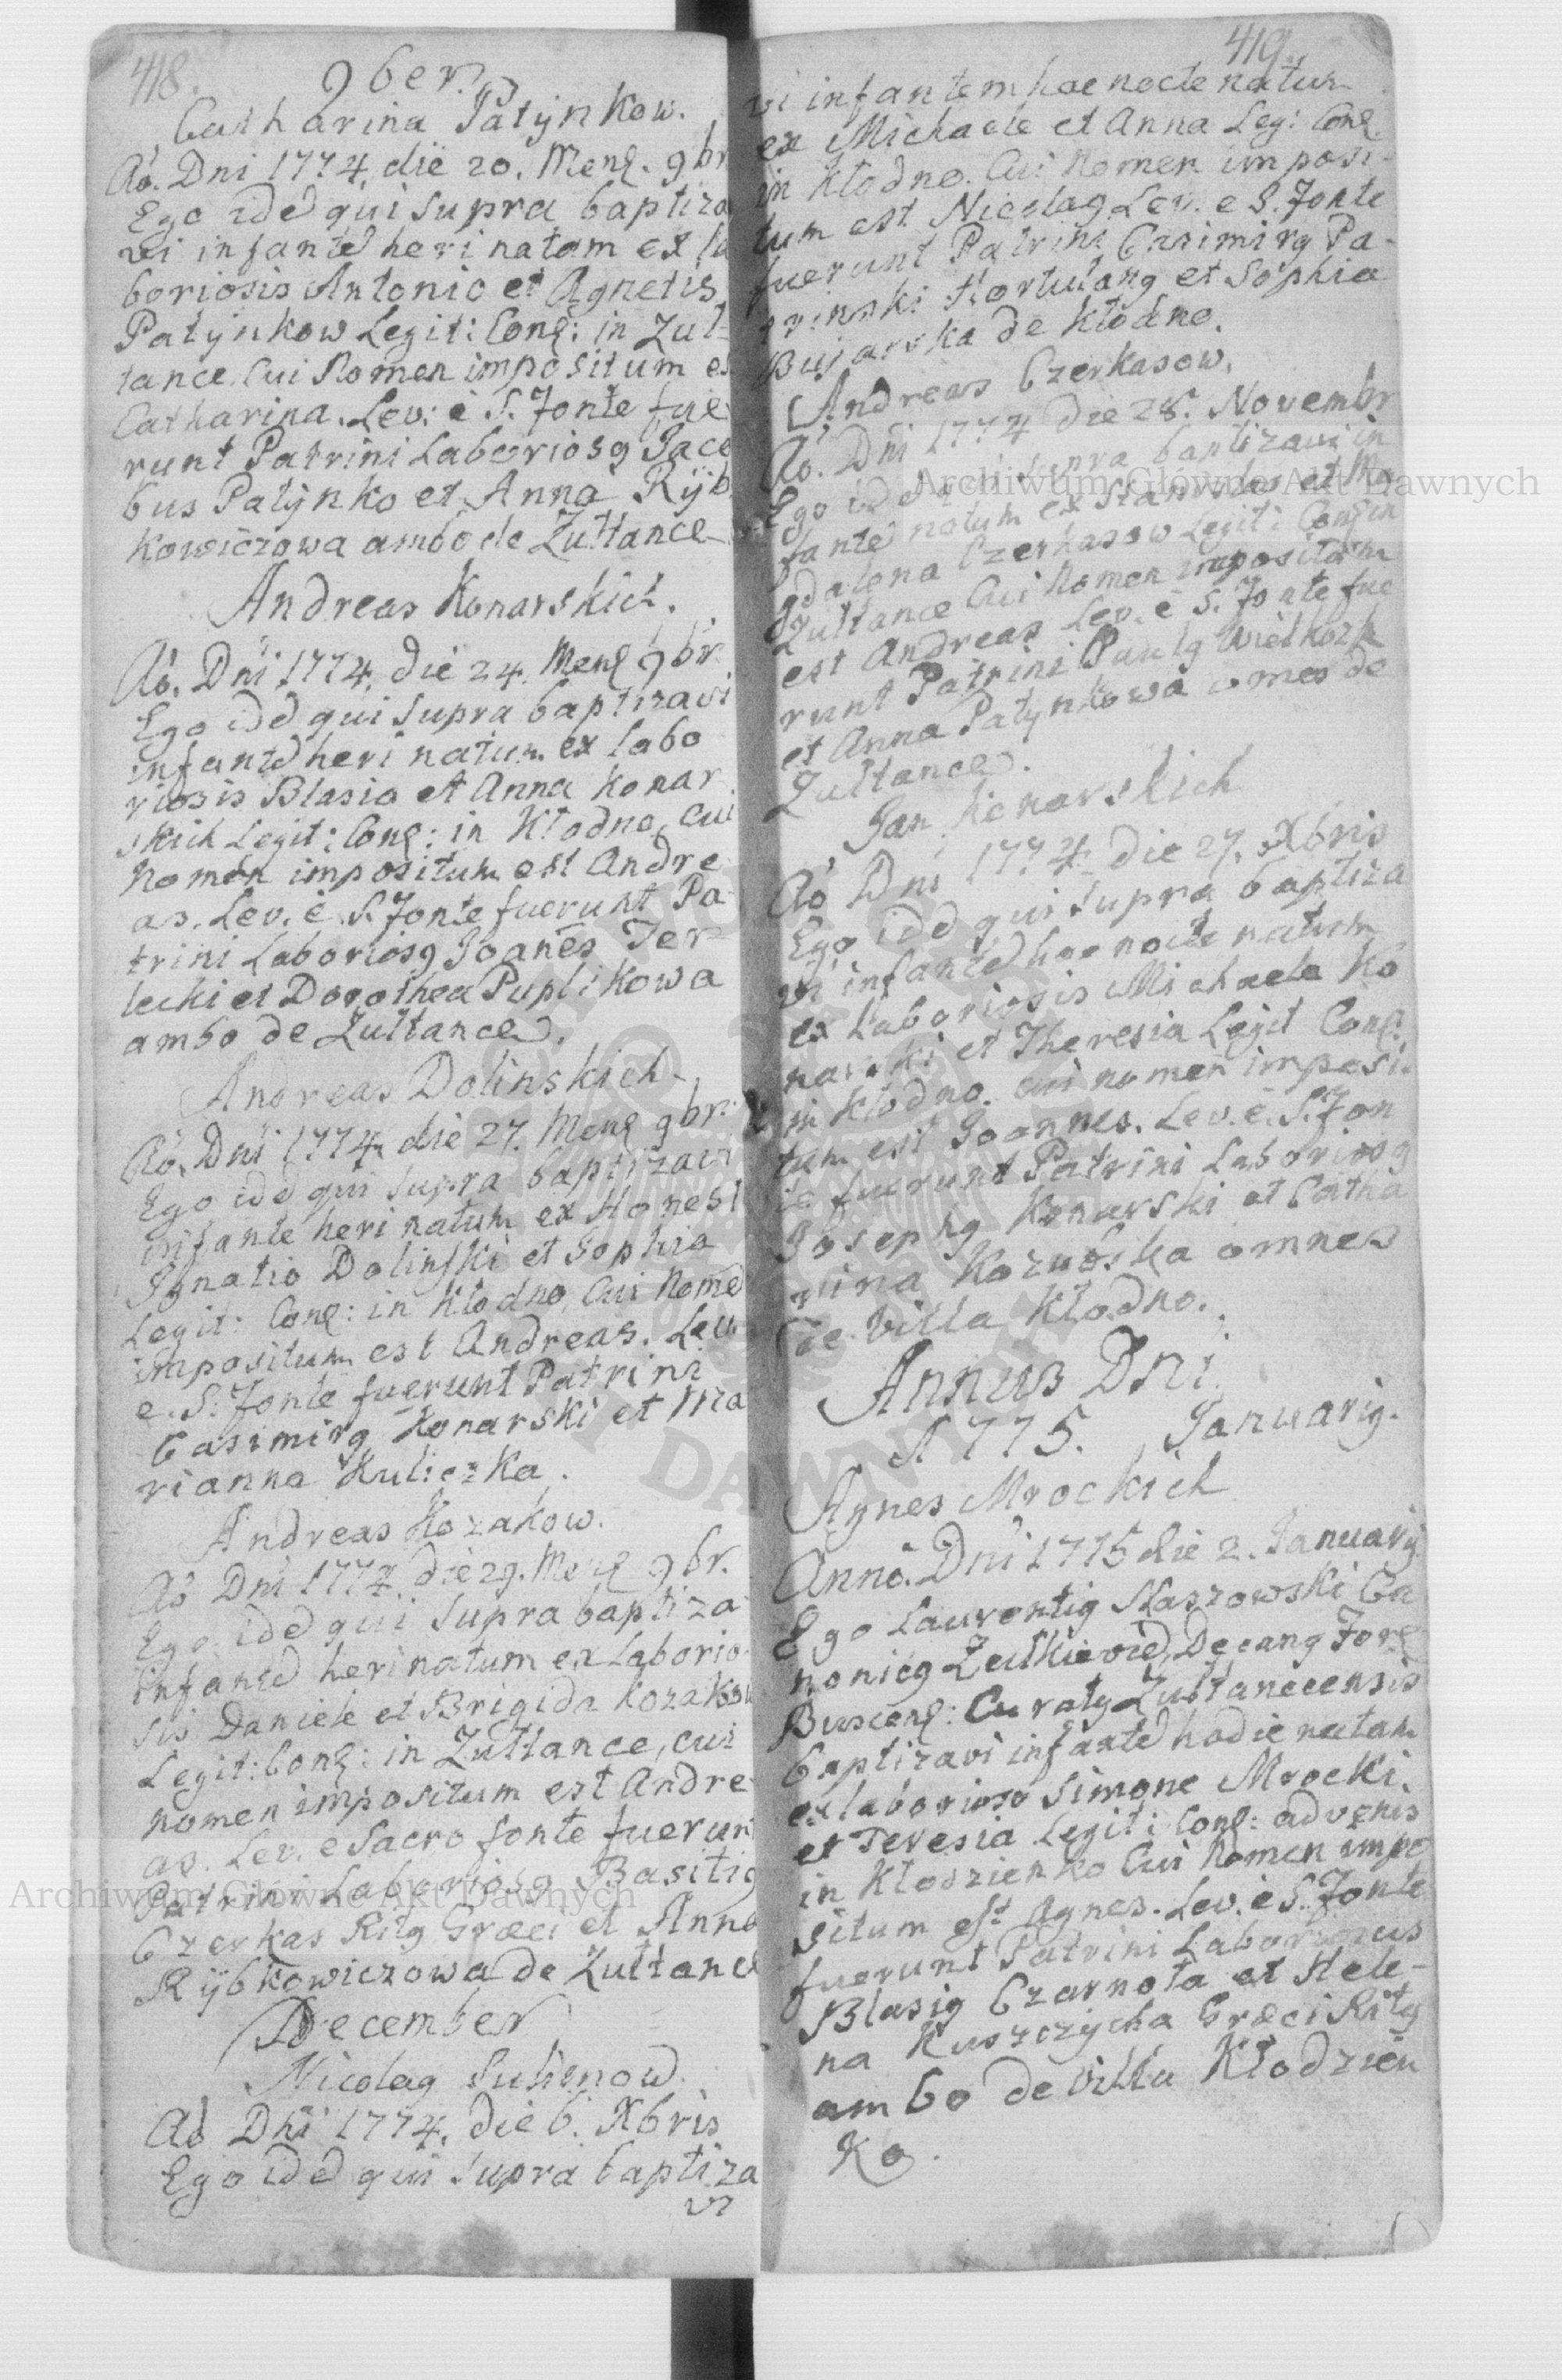 418.
9ber.
Catharina Patÿnkow.
Aó. Dni 1774. die 20. Menȩ. 9br
Ego idē qui supra baptiza
vi infantē heri natam ex la
boriosis Antonio et Agnetis
Patÿnkow Legit: Conȩ: in Zul-
tance. Cui Nomen impositum es
Catharina. Lev: è S. Fonte fue
runt Patrini Laboriosg Jaco
bus Patÿnko et Anna Rÿb
kowiczowa ambo de Zułtance
Andreas Konarskich.
Aó. Dni 1774. die 24. Menȩ 9br.
Ego idē qui supra baptizavi
infantē heri natum ex labo
riosis Blasio et Anna Konar
skich Legit: Conȩ: in Kłodno, cui
Nomen impositum est Andre
as. Lev. è S. Fonte fuerunt Pa
trini Laboriosg Joanēs Ter
lecki et Dorothea Puplikowa
ambo de Zułtance.
Andreas Dolinskich
Aó. Dni 1774. die 27. Menȩ 9br.
Ego idē qui supra baptizavi
infante heri natum ex Honest
Ignatio Dolinski et Sophia
Legit: Conȩ: in Kłodno, Cui Nomē
impositum est Andreas. Lev.
e. S. Fonte fuerunt Patrini
Casimirg Konarski et Ma
rianna Kuliczka.
Andreas Kozakow.
Aó Dni 1774. die 29. Menȩ 9br.
Ego idē qui supra baptiza
infantē heri natum ex Laborio
sis Daniele et Brigida Kozakow
Legit: Conȩ: in Zułtance, cui
nomen impositum est Andre
as. Lev. e Sacro fonte fuerun
Patrini Laboriosg Basilig
Czerkas Ritg Græci et Anna
Rÿbkowiczowa de Zułtance
December
Nicolag Suhenow.
Aó Dni 1774. die 6. Xbris
Ego idē qui supra baptiza
vi
419.
vi infantem hac nocte natum
ex Michaele et Anna Leg: Conȩ.
in Kłodno. Cui Nomen imposi-
tum est Nicolag Lev. e S. Fonte
fuerunt Patrini Casimirg Pa-
Hortulang et Sophia
Bujarska de Kłodno.
Andreas Czerkasow.
Aó. Dni 1774 die 28. Novembr
Ego idē qui supra baptizavi in
fantē natum ex Stanislao et Ma
gdalena Czerkasow Legit: Conȩ in
Zułtance Cui Nomen impositum
est Andreas Lev. è S. Fonte fue
runt Patrini Paulg
et Anna Patynkowa omes de
Zułtance.
Jan Konarskich
Aó Dni 1774. die 27. Xbris
Ego idē qui supra baptiza
vi infantē hac nocte natum
ex Laboriosis Michaele Ko
narski et Theresia Legit Conȩ.
in Kłodno. cui nomen imposi-
tum est Joannes. Lev. è. S. Fon
te fuerunt Patrini Laboriosg
Josephg Konarski et Catha
rina omnes
de Villa Kłodno.
Annus Dni
1775. Januarig.
Agnes Mrockich
Annò. Dni 1775 die 2. Januarij
Ego Laurentig Staszowski Ca
nonicg Zulkievieñ, Decang Forȩ
Buscenȩ: Curatg Zułtanecensis
baptizavi infantē hodie natam
ex laborioso Simone Mrocki,
et Teresia Legit: Conȩ: advenis
in Kłodzienko Cui Nomen impo
situm est Agnes. Lev. è S. Fonte
fuerunt Patrini Laboriosus
Blasig Czarnota et Hele-
na Kuszczycha Græci Ritg
ambo de villa Kłodzien
ko.
Archiwum Główne Akt Dawnych
Archiwum Główne Akt Dawnych